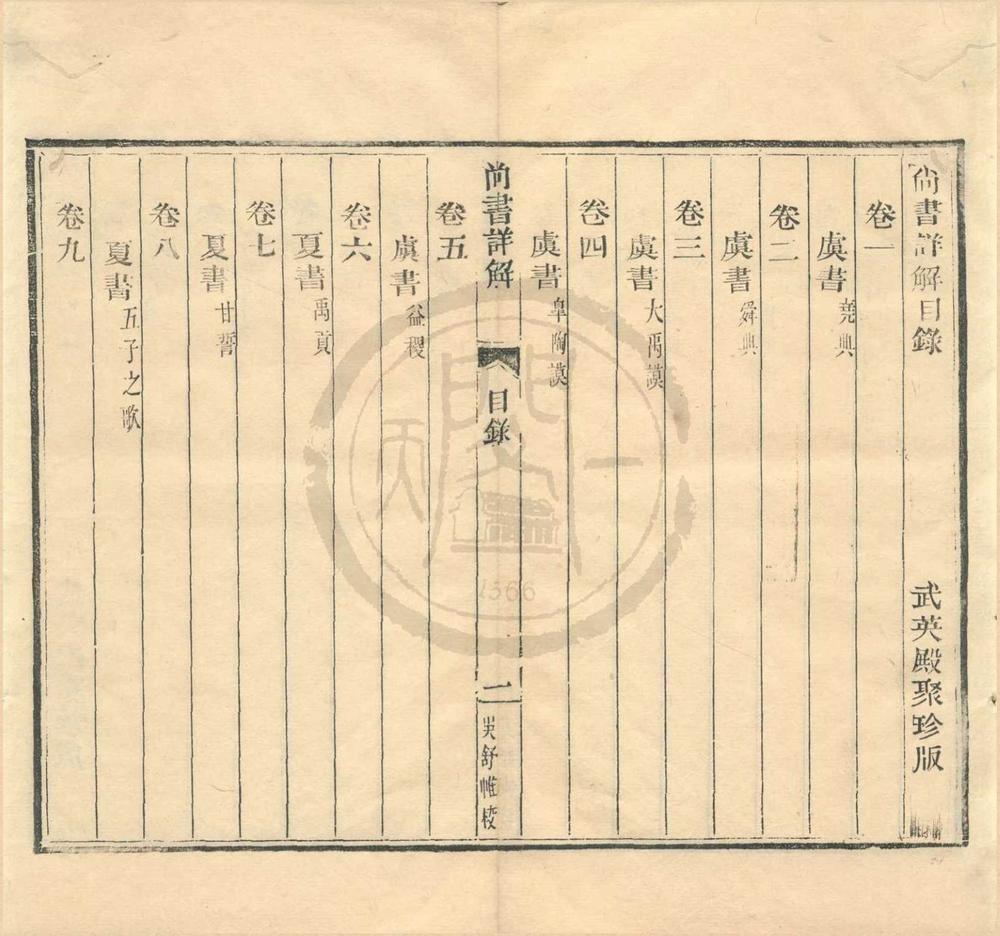 尚書詳解目錄 武英殿聚珍版
卷一
虞書 堯典
卷二
虞書 舜典
卷三
虞書 大禹謨
卷四
虞書 臯陶謨
尚書詳解 目錄 二 吳舒帷校
卷五
虞書 益稷
卷六
夏書 禹貢
卷七
夏書 甘誓
卷八
夏書 五子之歌
卷九
天一閣
1566